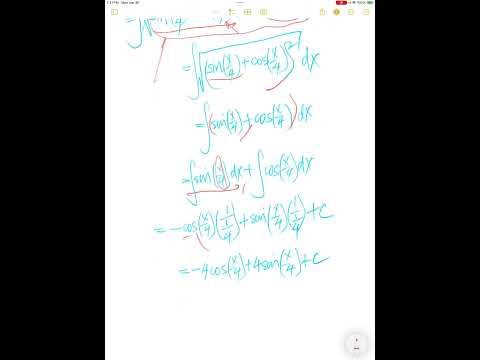 = ∫√(sin(x/4) + cos(x/4))² dx
= ∫(sin(x/4) + cos(x/4)) dx
= ∫sin(x/4) dx + ∫cos(x/4) dx
= -cos(x/4)(1/(1/4)) + sin(x/4)(1/(1/4)) + C
= -4cos(x/4) + 4sin(x/4) + C